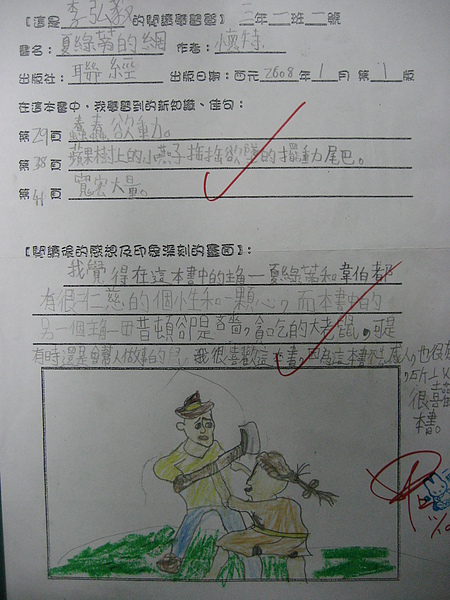 【這是李弘毅的閱讀學習單】三年二班二號
書名：夏綠蒂的網 作者：懷特
出版社：聯經 出版日期：西元2008年1月 第1版
在這本書中，我學習到的新知識、佳句：
第29頁 蠢蠢欲動。
第38頁 蘋果樹上的小燕子搖搖欲墜的擺動尾巴。
第41頁 寬宏大量。
【閱讀後的感想及印象深刻的畫面】：
我覺得在這本書中的主角—夏綠蒂和韋伯都
有很仁慈的個性和一顆心，而本書中的
另一個主角—田普頓卻是吝嗇，貪吃的大老鼠，可是
有時還是會幫人做事的，我很喜歡這本書，因為這本書不
很喜
本書。